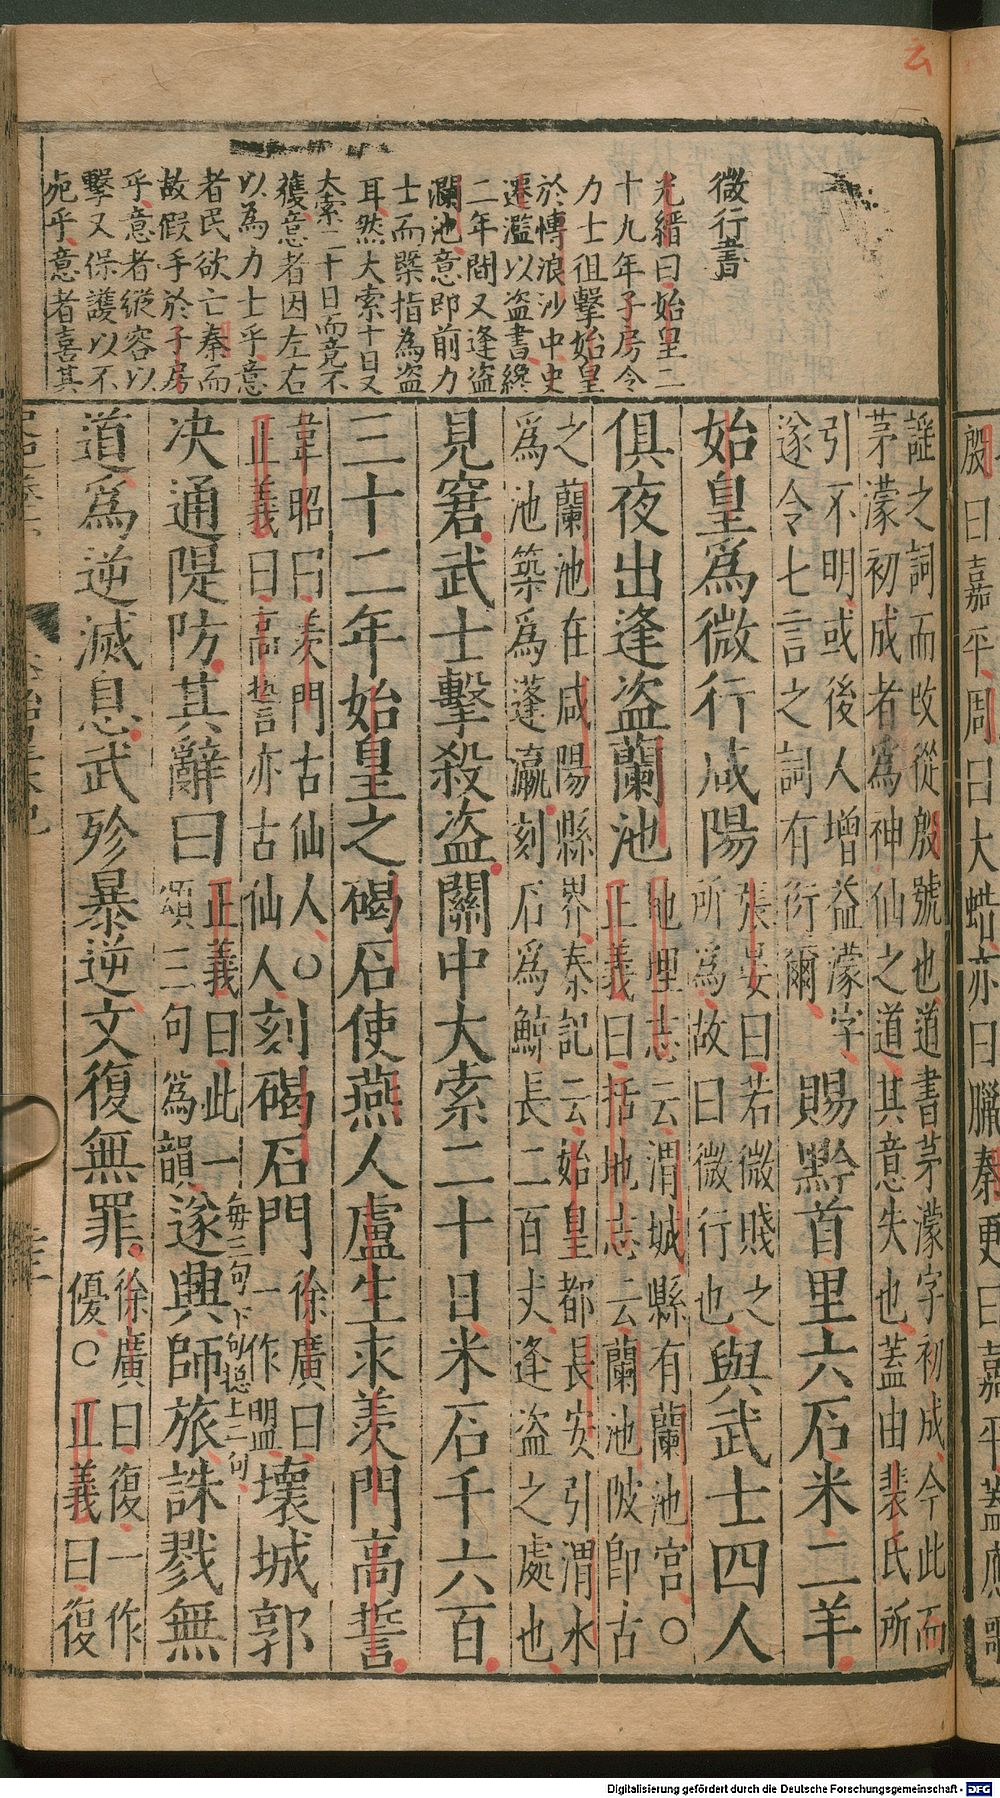 云
微行書
光縉曰始皇二
十九年子房令
力士徂擊始皇
於博浪沙中史
遷濫以盜書終
二年間又逢盜
瀾池意即前力
士而槩指為盜
耳然大索十日又
大索二十日而竟不
獲意者因左右
以為力士乎意
者民欲亡秦而
故假手於子房
乎意者縱容以
擊又保護以不
死乎意者喜其
殷曰嘉平周曰大蜡亦曰臘秦更曰嘉平蓋應歌
謡之詞而改從殷號也道書茅濛字初成今此而
茅濛初成者為神仙之道其意失也蓋由裴氏所
引不明或後人增益濛字賜黔首里六石米二羊
遂令七言之詞有衍爾
始皇為微行咸陽張晏曰若微賤之
所為故曰微行也與武士四人
俱夜出逢盜蘭池地理志云渭城縣有蘭池宮○
正義曰括地志云蘭池陂即古
之蘭池在咸陽縣界秦記云始皇都長安引渭水
為池築為蓬瀛刻石為鯨長二百丈逢盜之處也
見窘武士擊殺盜關中大索二十日米石千六百
三十二年始皇之碣石使燕人盧生求羨門高誓
韋昭曰羨門古仙人○
正義曰高誓亦古仙人刻碣石門徐廣曰
一作盟壞城郭
決通隄防其辭曰正義曰此一
頌三句為韻遂興師旅誅戮無
每三句下句摠上二句
道為逆滅息武殄暴逆文復無罪徐廣曰復一作
優○正義曰復
Digitalisierung gefördert durch die Deutsche Forschungsgemeinschaft - DFG